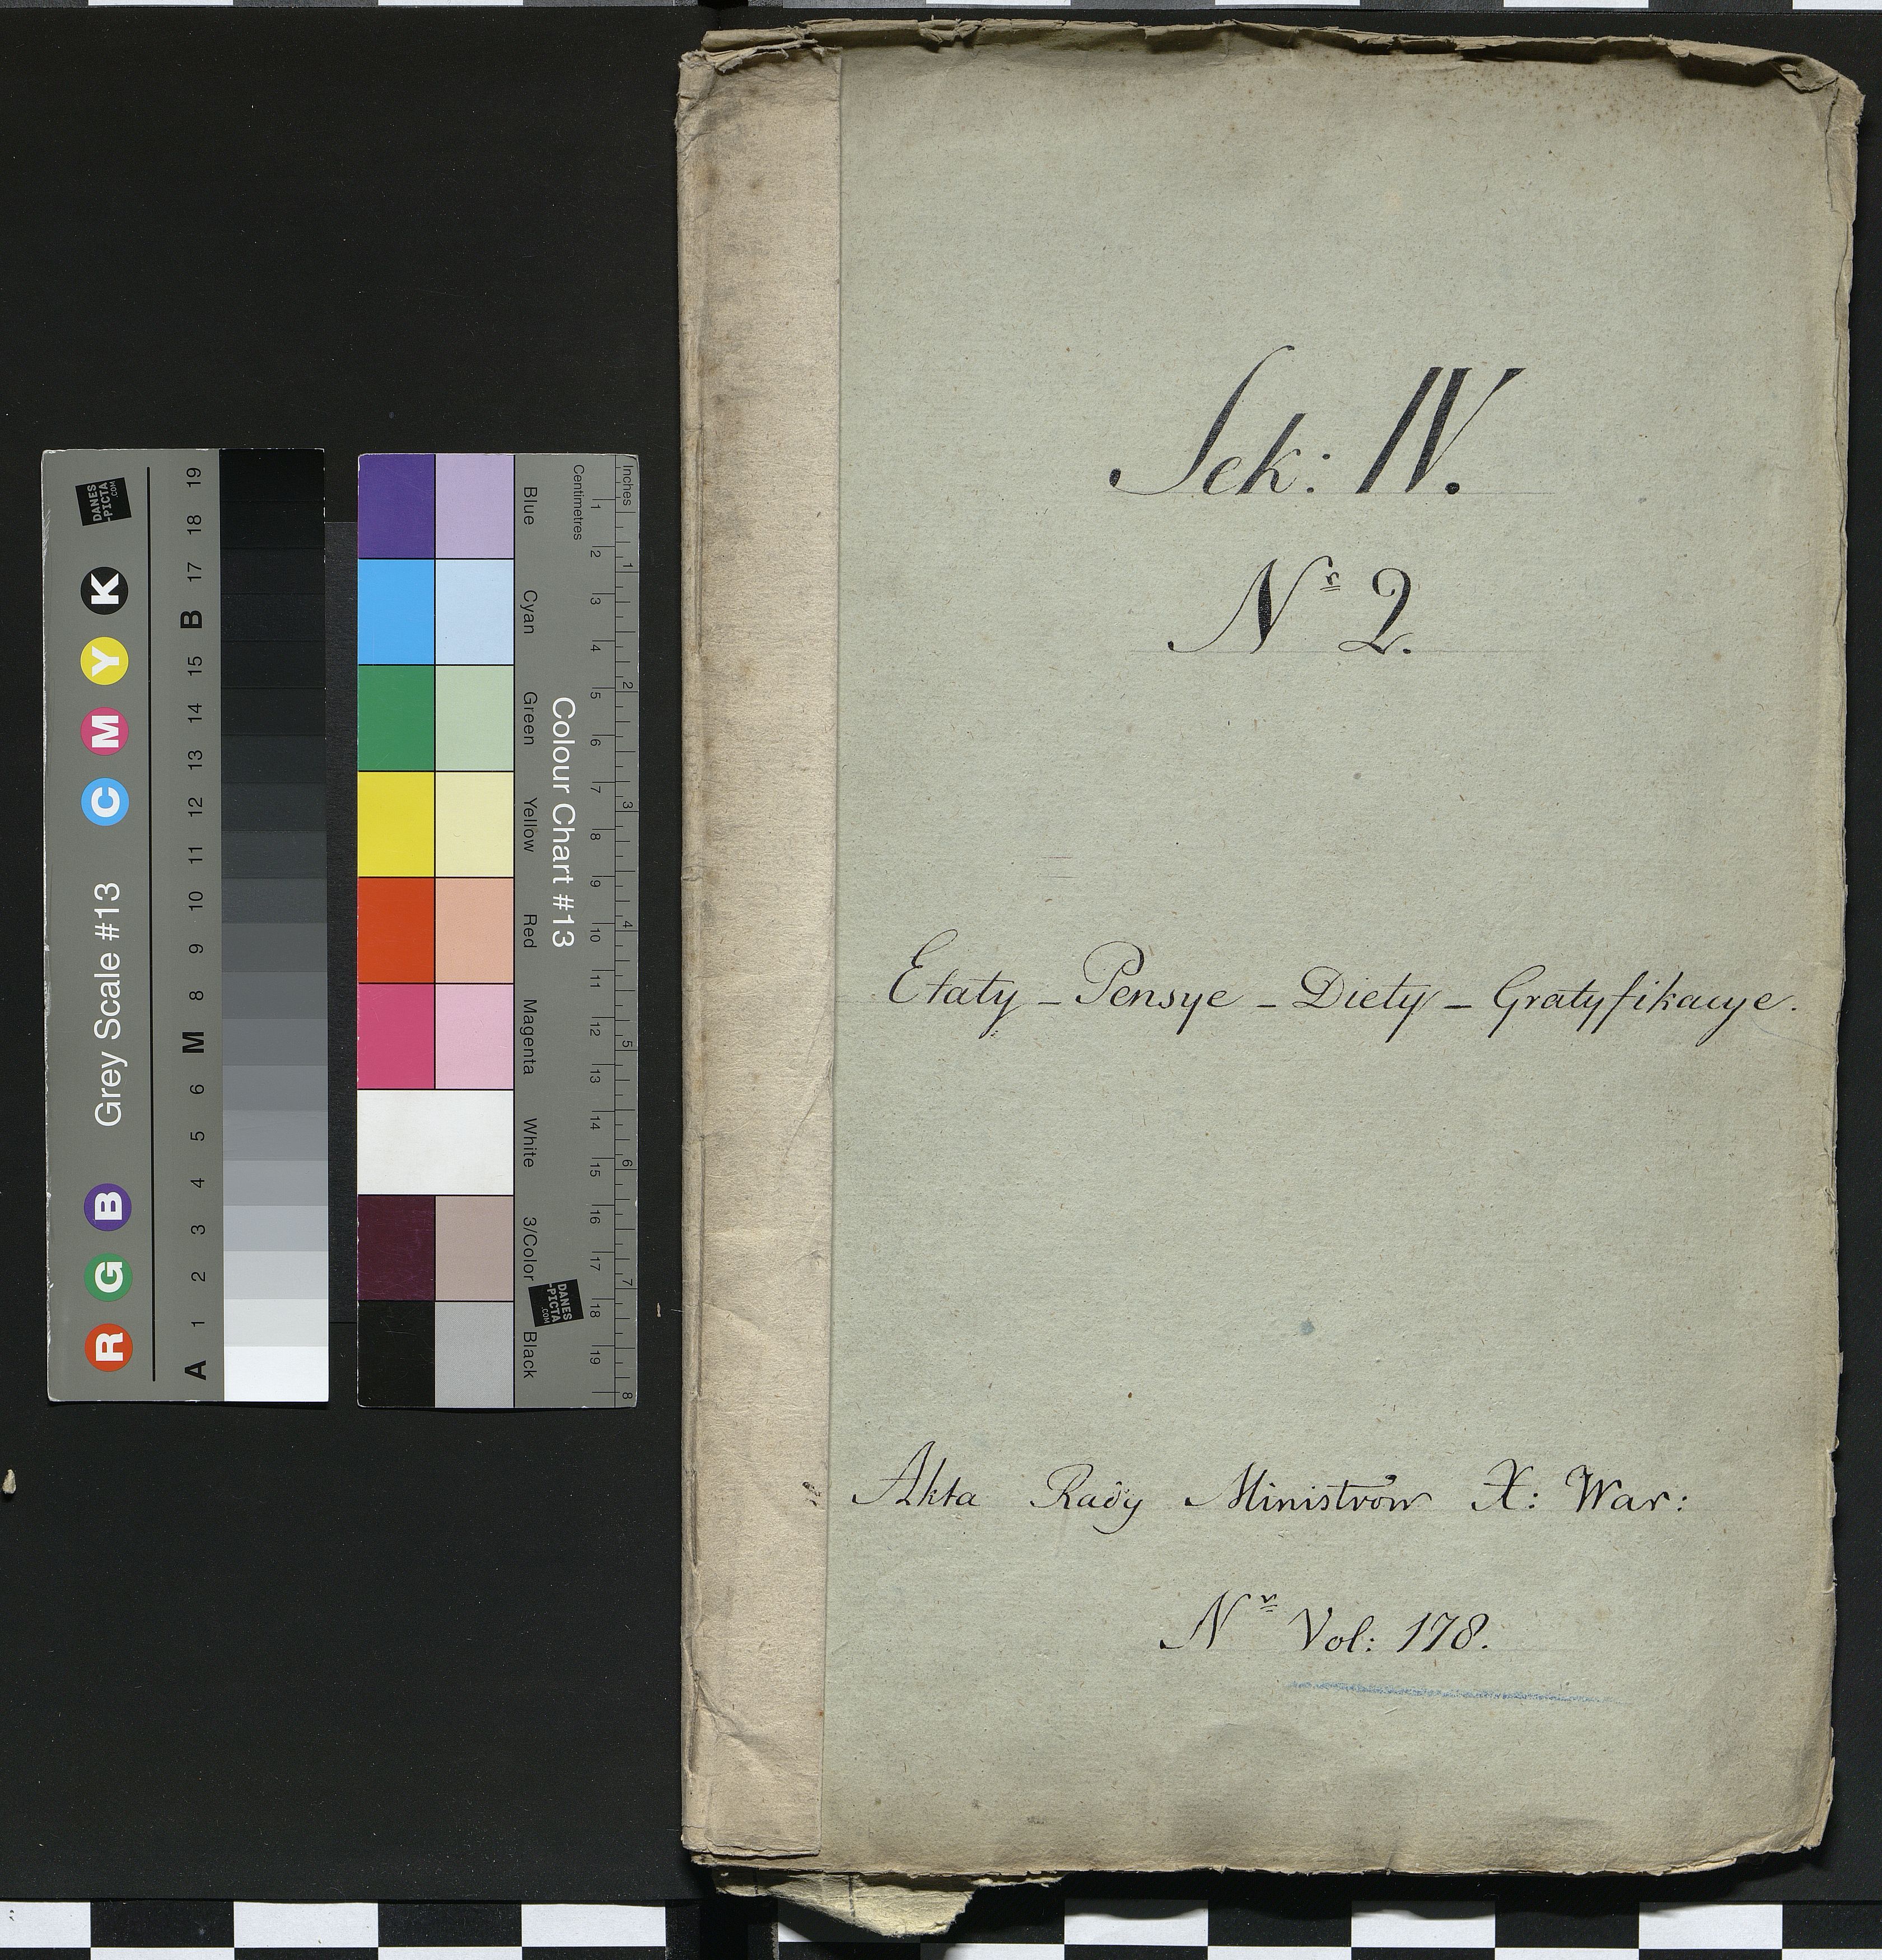 Sek: IV.
Nº 2.
Etaty – Pensye – Diety – Gratyfikacye.
Akta Rady Ministrów X: War:
Nr Vol: 178.
Grey Scale #13
R G B C M Y K
A 1 2 3 4 5 6 M 8 9 10 11 12 13 14 15 B 17 18 19
DANES
-PICTA
.COM
Colour Chart #13
Blue Cyan Green Yellow Red Magenta White 3/Color Black
Centimetres
1 2 3 4 5 6 7 8 9 10 11 12 13 14 15 16 17 18 19
Inches
1 2 3 4 5 6 7 8
DANES
-PICTA
.COM